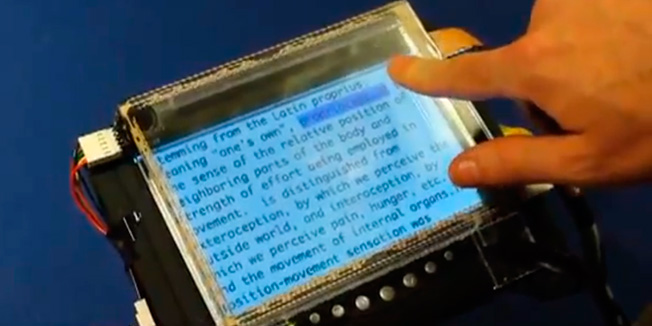 emming from the Latin proprius,
eaning 'one's own',
e sense of the relative position of
eighboring parts of the body and
trength of effort being employed in
ovement. is distinguished from
teroception, by which we perceive the
utside world, and interoception, by
hich we perceive pain, hunger, etc.,
nd the movement of internal organs.
osition-movement sensation was